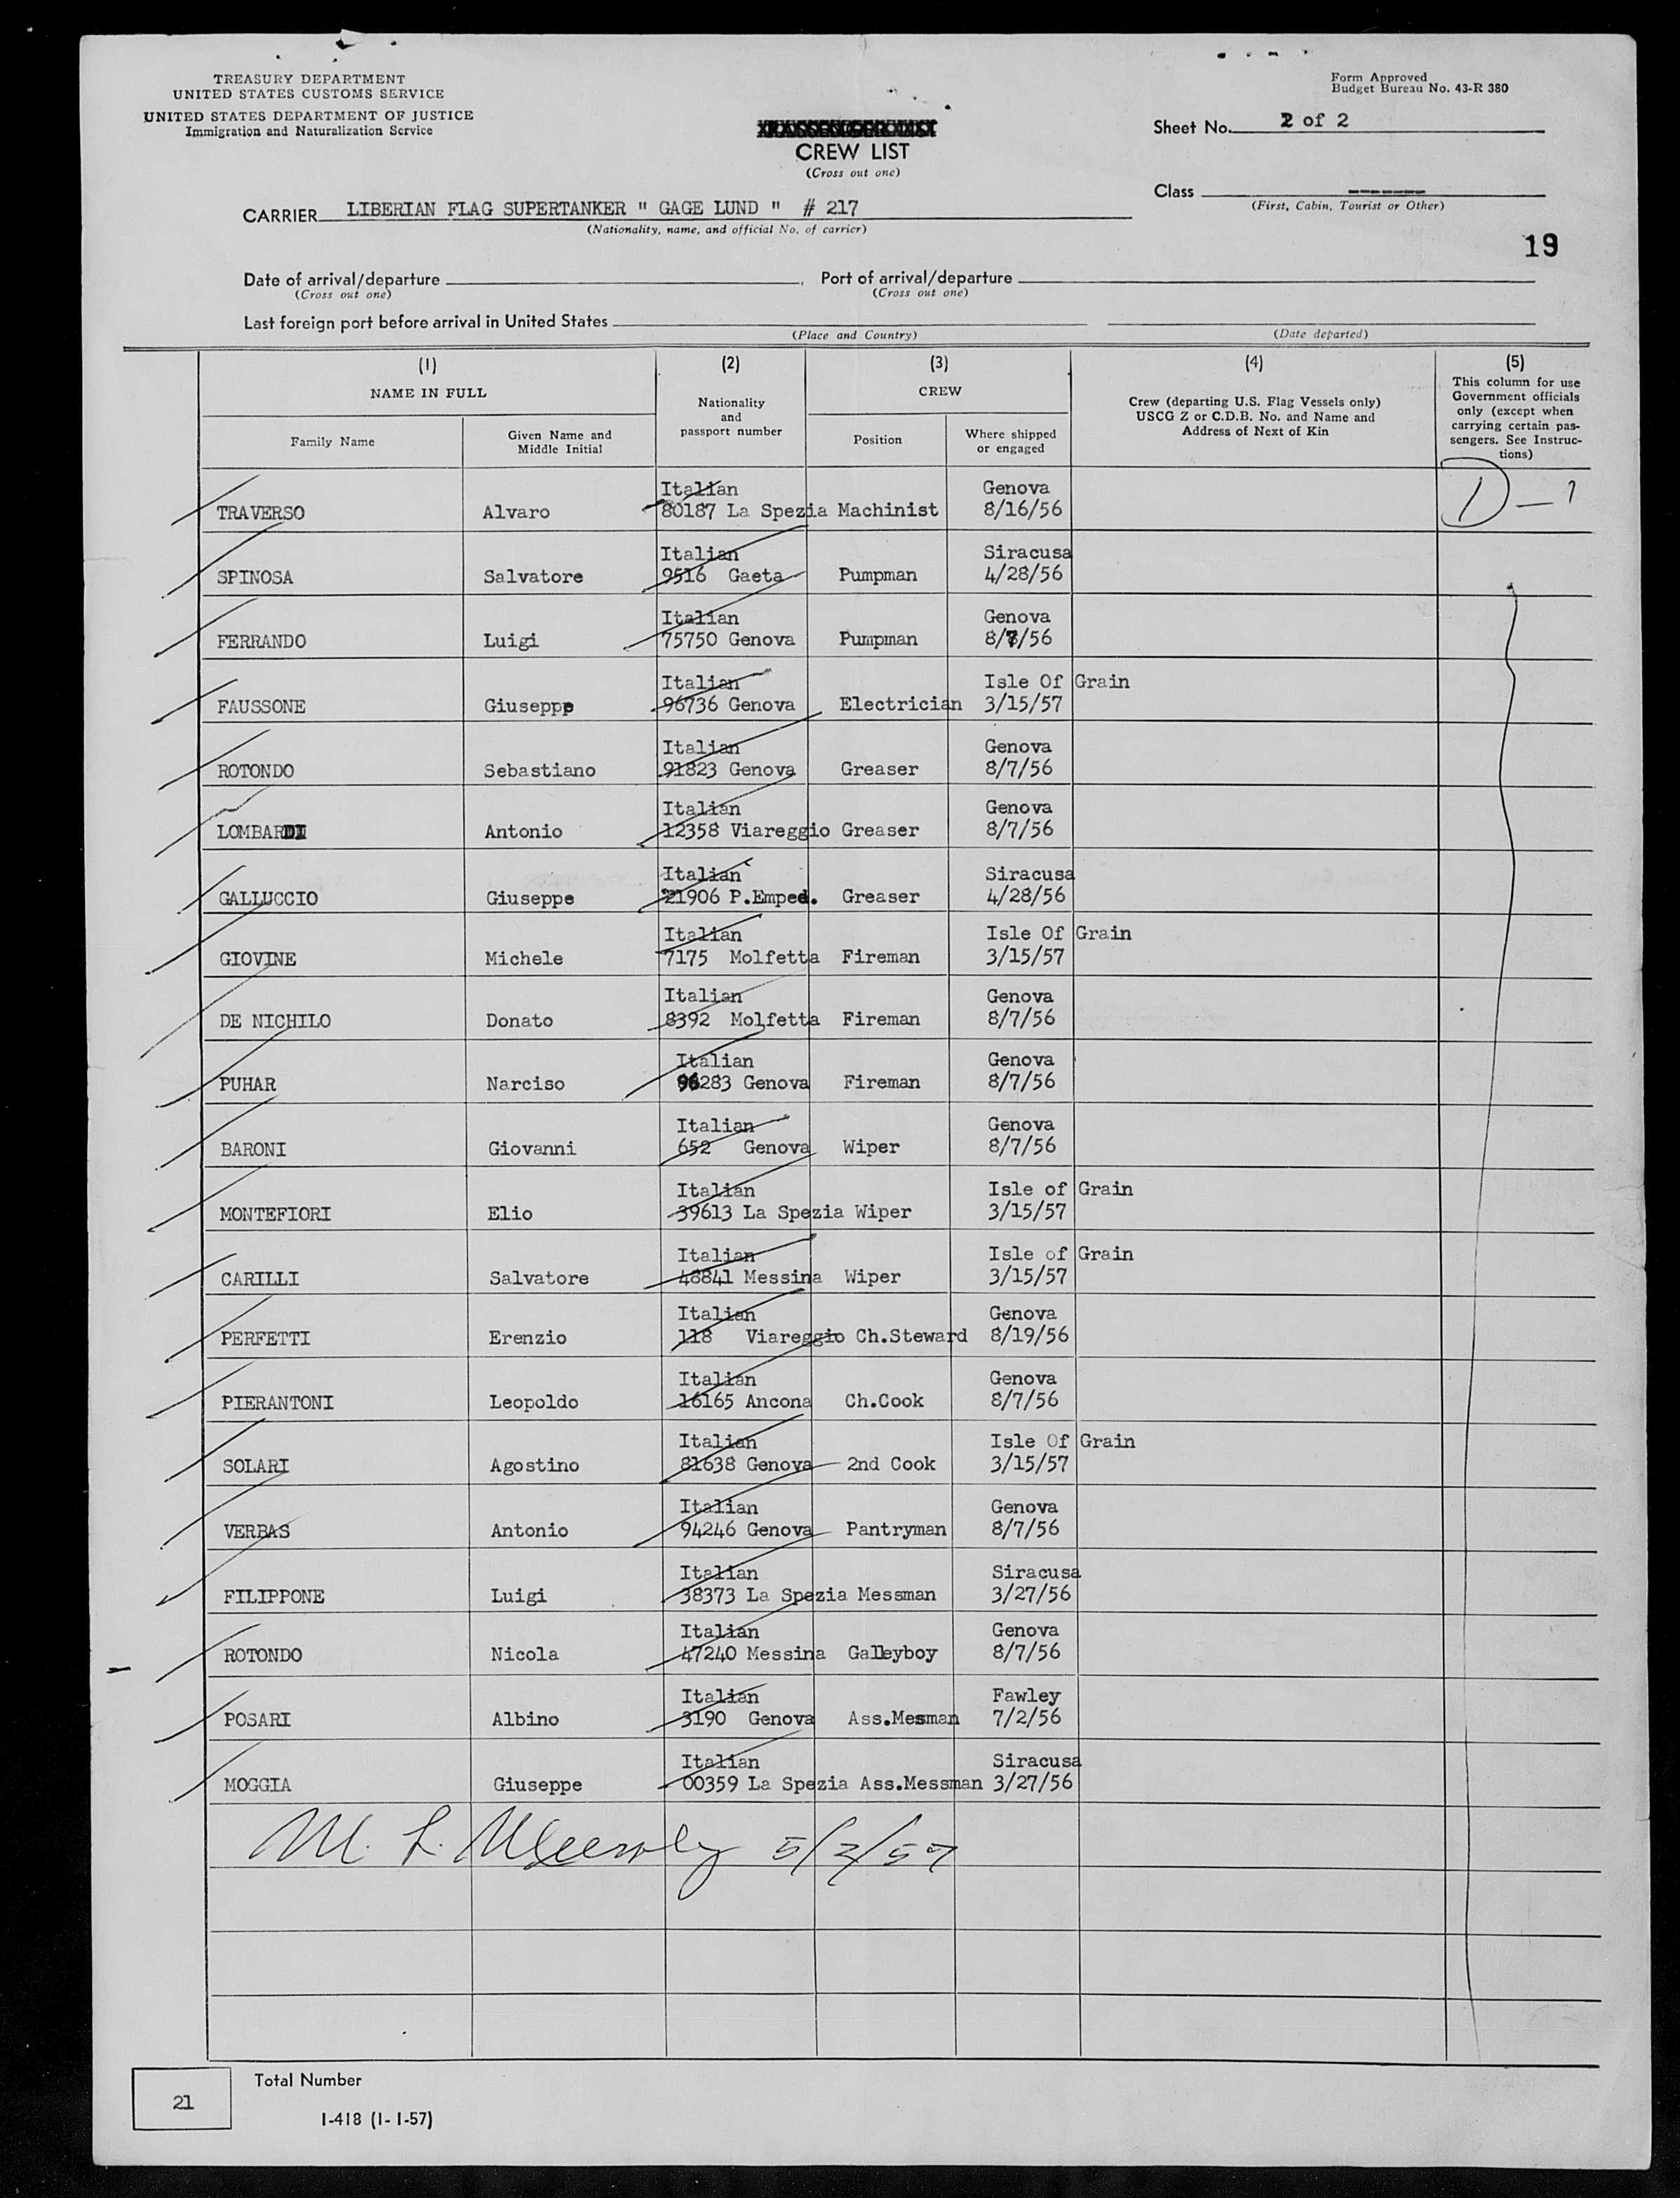 TREASURY DEPARTMENT
UNITED STATES CUSTOMS SERVICE
UNITED STATES DEPARTMENT OF JUSTICE
Immigration and Naturalization Service
Form Approved
Budget Bureau No. 43-R 380
CREW LIST
(Cross out one)
Sheet No. 2 of 2
Class -----
(First, Cabin, Tourist or Other)
CARRIER LIBERIAN FLAG SUPERTANKER " GAGE LUND " # 217
(Nationality, name, and official No. of carrier)
19
Date of arrival/departure , Port of arrival/departure
(Cross out one) (Cross out one)
Last foreign port before arrival in United States
(Place and Country) (Date departed)
(1) (2) (3) (4) (5)
NAME IN FULL
Family Name
Given Name and
Middle Initial
Nationality
and
passport number
CREW
Position
Where shipped
or engaged
Crew (departing U.S. Flag Vessels only)
USCG Z or C.D.B. No. and Name and
Address of Next of Kin
This column for use
Government officials
only (except when
carrying certain pas-
sengers. See Instruc-
tions)
Italian Genova
TRAVERSO Alvaro 80187 La Spezia Machinist 8/16/56
Italian Siracusa
SPINOSA Salvatore 9516 Gaeta Pumpman 4/28/56
Italian Genova
FERRANDO Luigi 75750 Genova Pumpman 8/7/56
Italian Isle Of Grain
FAUSSONE Giuseppe 96736 Genova Electrician 3/15/57
Italian Genova
ROTONDO Sebastiano 91823 Genova Greaser 8/7/56
Italian Genova
LOMBARDI Antonio 12358 Viareggio Greaser 8/7/56
Italian Siracusa
GALLUCCIO Giuseppe 21906 P.Emped. Greaser 4/28/56
Italian Isle Of Grain
GIOVINE Michele 7175 Molfetta Fireman 3/15/57
Italian Genova
DE NICHILO Donato 8392 Molfetta Fireman 8/7/56
Italian Genova
PUHAR Narciso 96283 Genova Fireman 8/7/56
Italian Genova
BARONI Giovanni 652 Genova Wiper 8/7/56
Italian Isle of Grain
MONTEFIORI Elio 39613 La Spezia Wiper 3/15/57
Italian Isle of Grain
CARILLI Salvatore 48841 Messina Wiper 3/15/57
Italian Genova
PERFETTI Erenzio 118 Viareggio Ch.Steward 8/19/56
Italian Genova
PIERANTONI Leopoldo 16165 Ancona Ch.Cook 8/7/56
Italian Isle Of Grain
SOLARI Agostino 81638 Genova 2nd Cook 3/15/57
Italian Genova
VERBAS Antonio 94246 Genova Pantryman 8/7/56
Italian Siracusa
FILIPPONE Luigi 38373 La Spezia Messman 3/27/56
Italian Genova
ROTONDO Nicola 47240 Messina Galleyboy 8/7/56
Italian Fawley
POSARI Albino 3190 Genova Ass.Mesman 7/2/56
Italian Siracusa
MOGGIA Giuseppe 00359 La Spezia Ass.Messman 3/27/56
M. L. 5/2/57
21
Total Number
I-418 (1-1-57)